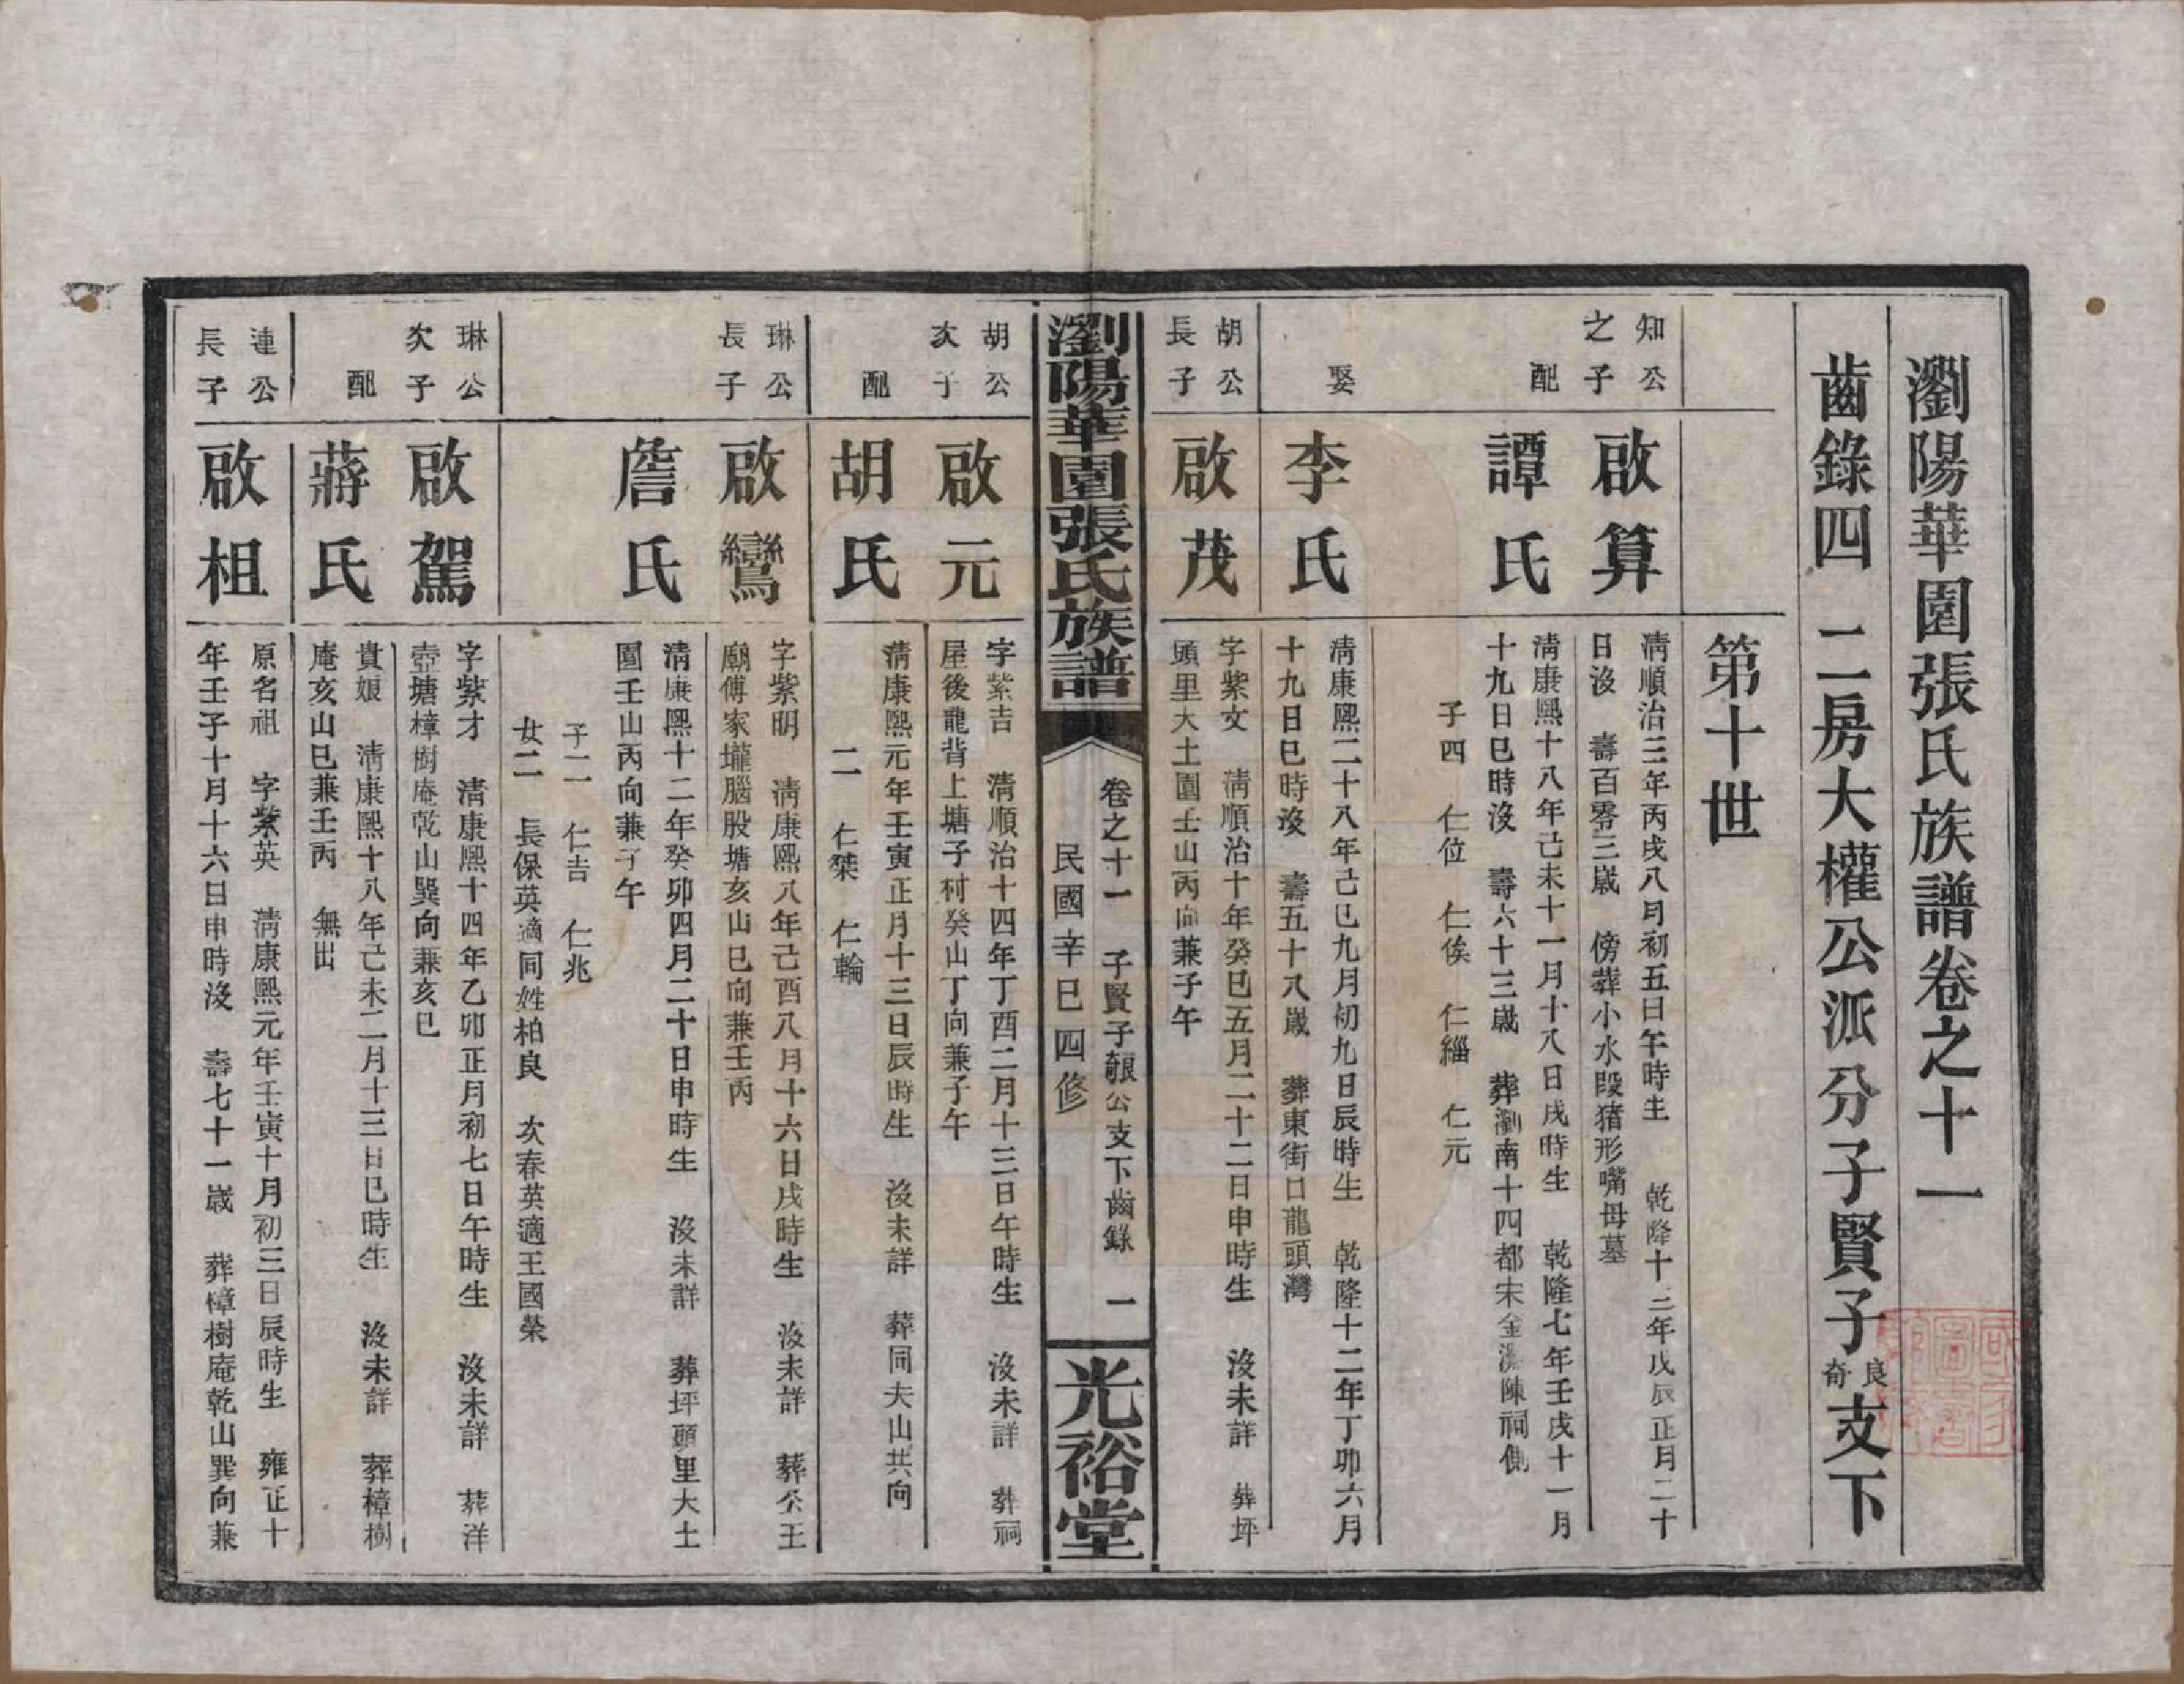 瀏陽華園張氏族譜卷之十一
齒錄四 二房大權公派分子賢子良奇支下
第十世
知公之子
啟算
清順治三年丙戌八月初五日午時生 乾隆十三年戊辰正月二十
日沒 壽百零三歲 傍葬小水段豬形嘴毋墓
配
譚氏
清康熙十八年己未十一月十八日戌時生 乾隆七年壬戌十一月
十九日巳時沒 壽六十三歲 葬瀏南十四都宋金灘陳祠側
子四 仁位 仁俟 仁緇 仁元
娶
李氏
清康熙二十八年己巳九月初九日辰時生 乾隆十二年丁卯六月
十九日巳時沒 壽五十八歲 葬東街口龍頭灣
胡公長子
啟茂
字紫文 清順治十年癸巳五月二十二日申時生 沒未詳 葬坪
頭里大土園壬山丙向兼子午
瀏陽華園張氏族譜
卷之十一 子賢子良奇公支下齒錄 一
民國辛巳四修
光裕堂
胡公次子
啟元
字紫吉 清順治十四年丁酉二月十三日午時生 沒未詳 葬祠
屋後龍背上塘子村癸山丁向兼子午
配
胡氏
清康熙元年壬寅正月十三日辰時生 沒未詳 葬同夫山共向
二 仁桀 仁輪
琳公長子
啟鸞
字紫明 清康熙八年己酉八月十六日戌時生 沒未詳 葬公王
廟傅家壠腦股塘亥山巳向兼壬丙
詹氏
清康熙十二年癸卯四月二十日申時生 沒未詳 葬坪頭里大土
園壬山丙向兼子午
子二 仁吉 仁兆
女二 長保英適同姓柏良 次春英適王國榮
琳公次子
啟駕
字紫才 清康熙十四年乙卯正月初七日午時生 沒未詳 葬洋
壺塘樟樹庵乾山巽向兼亥巳
配
蔣氏
貴娘 清康熙十八年己未二月十三日巳時生 沒未詳 葬樟樹
庵亥山巳兼壬丙 無出
連公長子
啟祖
原名祖 字紫英 清康熙元年壬寅十月初三日辰時生 雍正十
年壬子十月十六日申時沒 壽七十一歲 葬樟樹庵乾山巽向兼